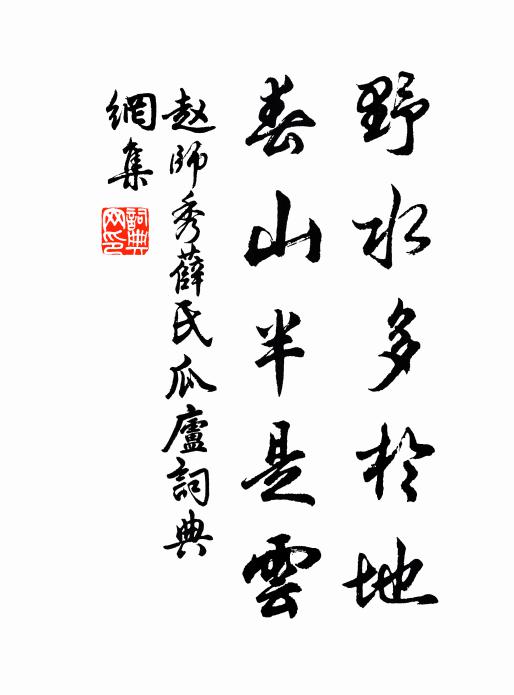 野水多於地
春山半是雲
赵師秀薛氏瓜廬詞典
網集
詞典
网印